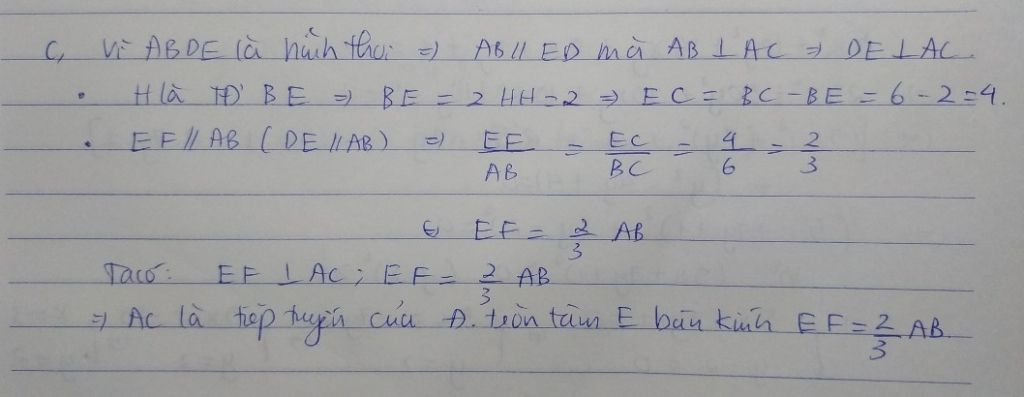 c, Vì ABDE là hình thoi => AB // ED mà AB ⊥ AC => DE ⊥ AC.
• H là TĐ BE => BE = 2 HH = 2 => EC = BC - BE = 6 - 2 = 4.
• EF // AB (DE // AB) => EF/AB = EC/BC = 4/6 = 2/3
<=> EF = 2/3 AB
Ta có: EF ⊥ AC; EF = 2/3 AB
=> AC là tiếp tuyến của Đ. tròn tâm E bán kính EF = 2/3 AB